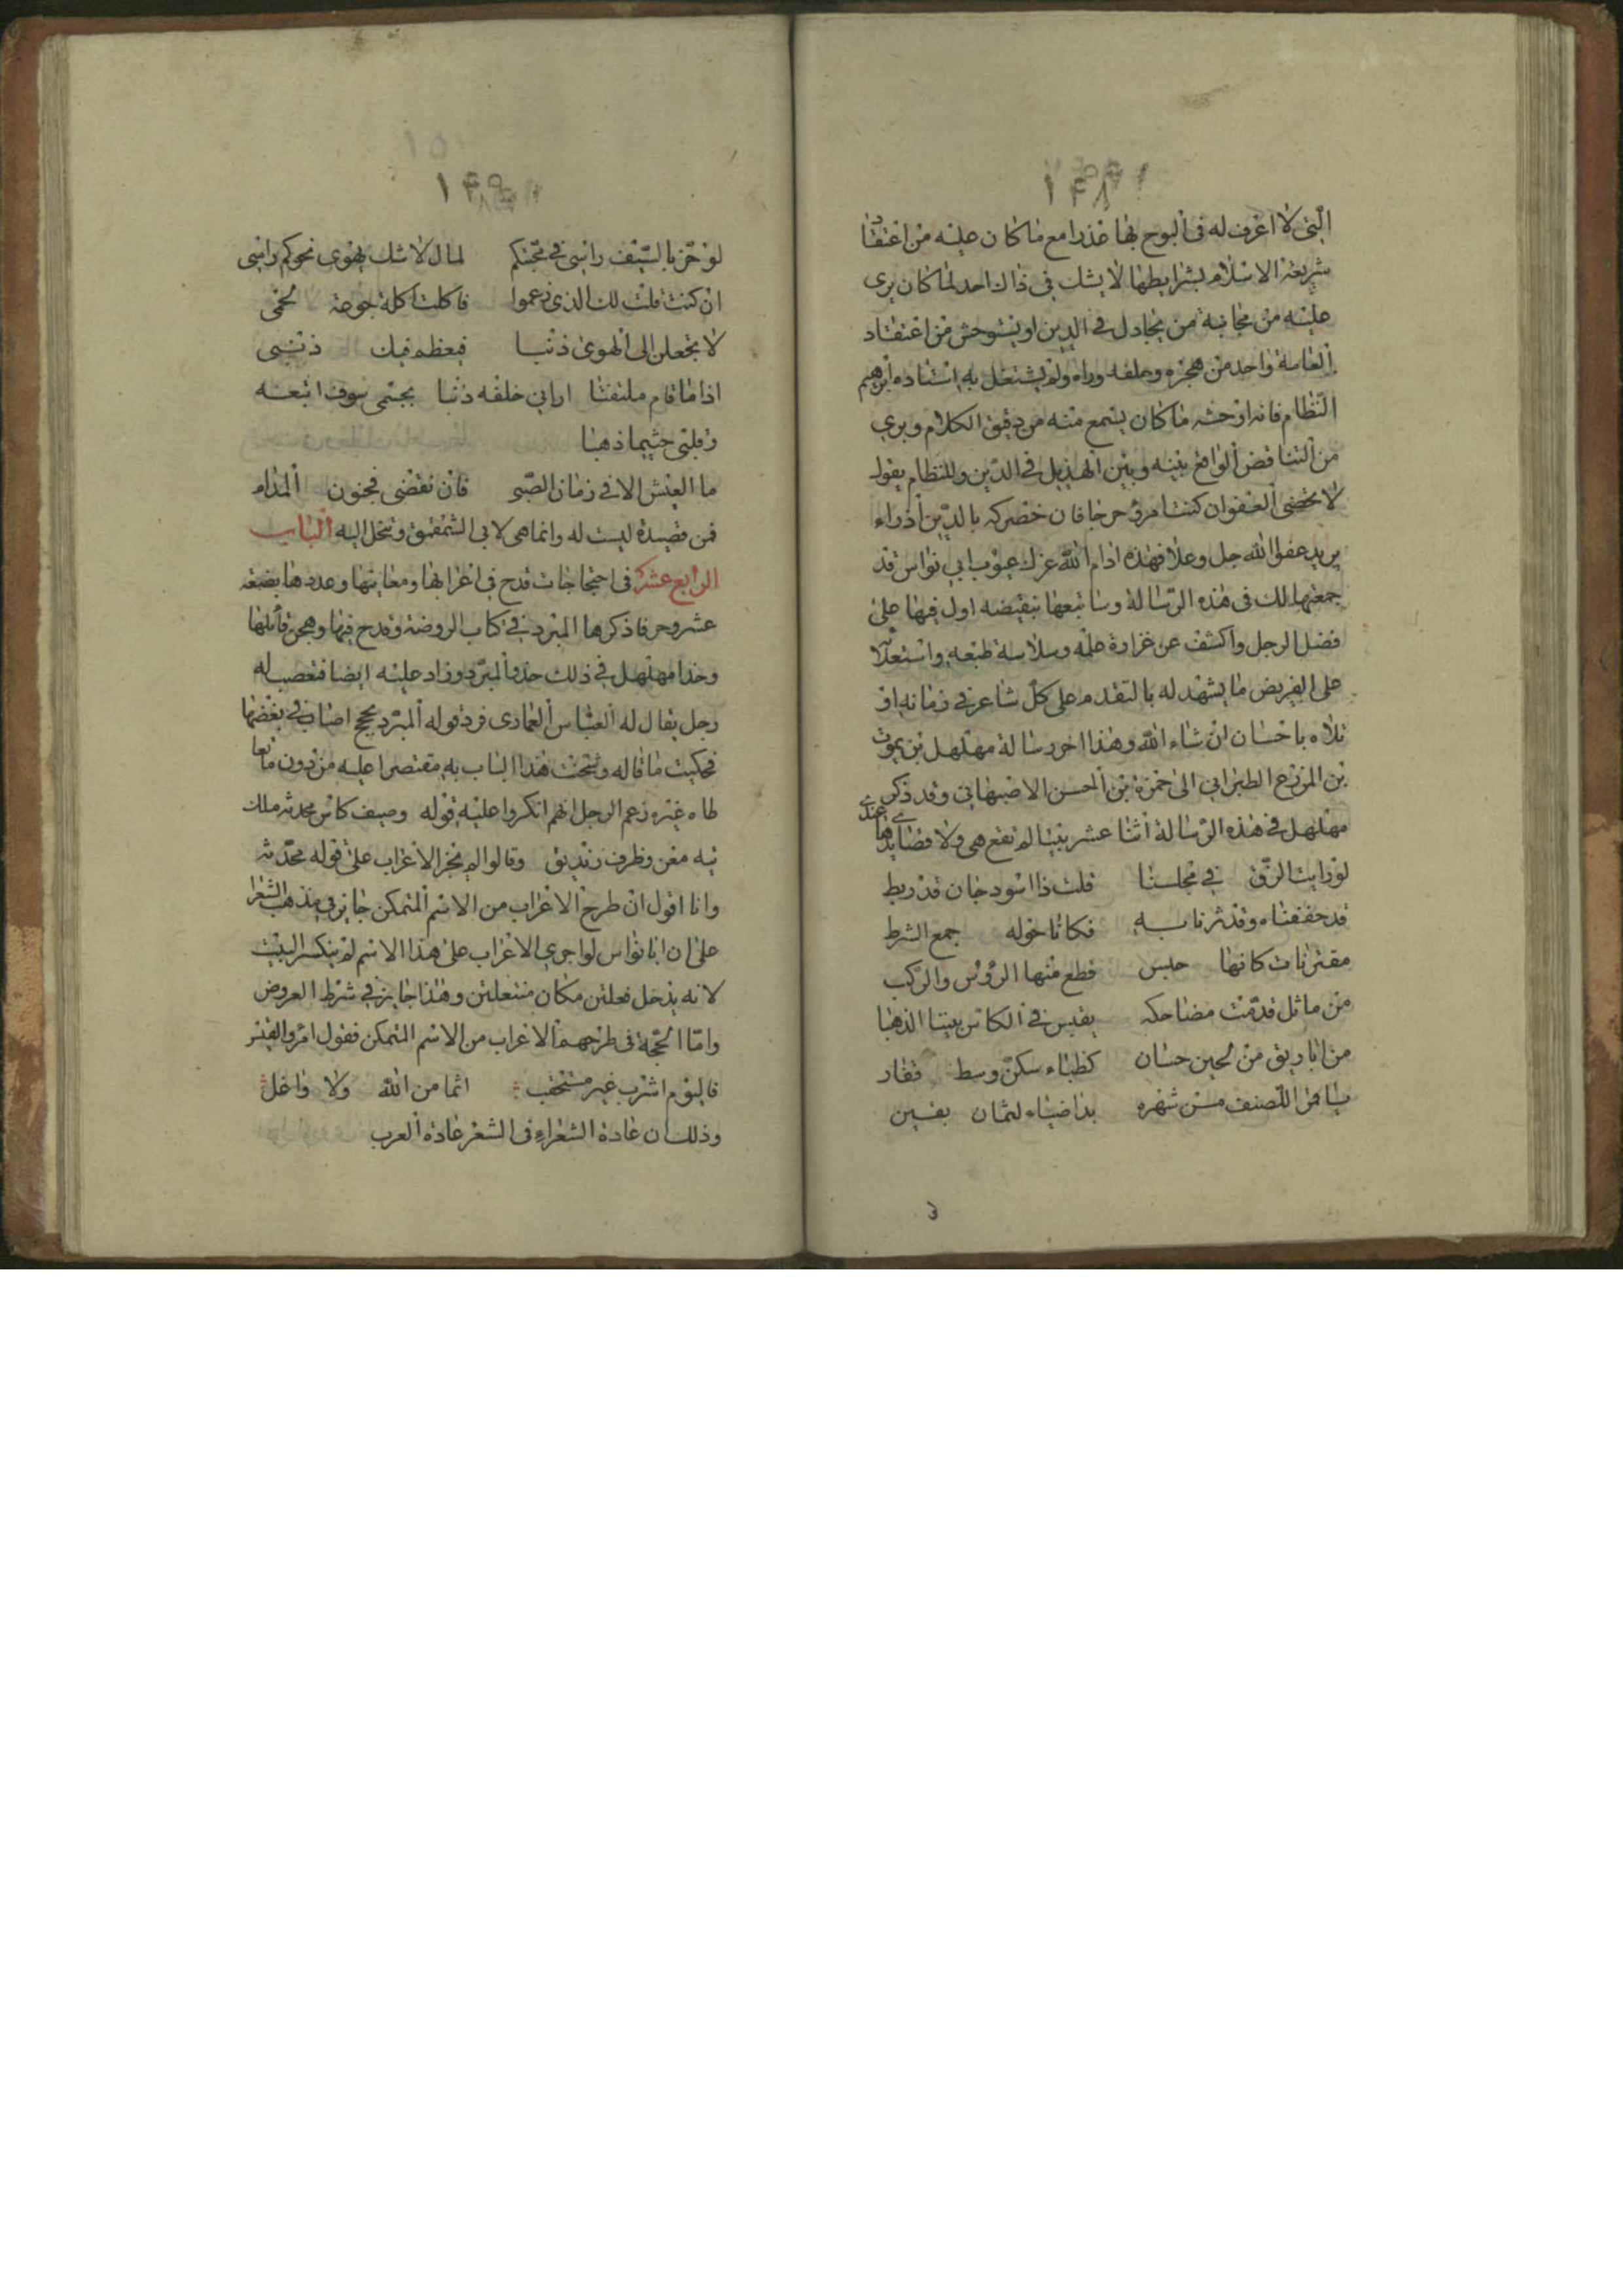 ١٤٨
الّتى لا اعرف له فى البوح بها عذرا مع ما كان عليه من اعتقاد
شريعة الاسلام بشرايطها لا يشك فى ذالك احد لما كان يرى
عليه من مجانبة من يجادل فى الدين او يستوحش من اعتقاد
العامة واحد من هجره وخلفه وراه ولم يشتغل به استاده ابرهيم
النّظام فانه اوحشه ما كان يسمع منه من دقيق الكلام ويرى
من التناقض الواقع بينه وبين الهذيل فى الدّين وللنظام يقول
لا تحضى العفو ان كنت امرؤ حرجا فان حضركه بالدّين أذراء
يريد عفو الله جل وعلا فهذه ادام الله عزك عيوب ابى نواس قد
جمعتها لك فى هذه الرّسالة وساتبعها بنقيضه اول فيها على
فضل الرجل واكشف عن غزارة علمه وسلاسة طبعه واستعلائه
على القريض ما يشهد له بالتقدم على كلّ شاعر فى زمانه او
تلاه باحسان ان شاء الله وهذا اخر رسالة مهلهل بن يموت
بن المزرع الطبرانى الى حمزة بن الحسن الاصبهانى وقد ذكر
مهلهل فى هذه الرّسالة اثنا عشر بيتا لم تقع هى ولا قصايدها عندى
لو رايت الزّق فى مجلسنا قلت ذا اسود جان قد ربط
قد حففناه وقد ثرنا به فكاناحوله جمع الشرط
مقترنات كانها حبس قطع منها الرؤس والركب
من ماثل قدّمت مضاحكه يقبس فى الكاس بيتنا الذهبا
من اباريق من لجين حسان كظباء سكنّ وسط قفار
يا قمر اللّصنف من شهره بدا ضياء لثمان بقين
١٤٩
لو حزّ بالسّيف راسى فى محبّتكم لمال لا شك يهوى نحوكم راسى
ان كنت قلت لك الذى زعموا فاكلت اكلة جوعة لحمى
لا تجعلن الى الهوى ذنبا فيعظم فيك ذنبى
اذا ما قام ملتفتا ارانى خلفه ذنبا بجسمى سوف اتبعه
وقلبى حيثما ذهبا
ما العيش الا فى زمان الصّبى فان تقضى فجنون المدام
فمن قصيدة ليست له وانما هى لابى الشمقمق وتنحل اليه الباب
الرابع عشر فى احتجاجات قدح فى اعرابها ومعانيها وعددها بضعة
عشر وحرفا ذكرها المبرد فى كتاب الروضة وقدح فيها وهجن قائلها
وحذا مهلهل فى ذلك حذو المبرّد وزاد عليه ايضا فتعصب له
رجل يقال له العبّاس العمادى فرد قوله المبرّد بحجج اصاب فى بعضها
فحكيت ما قاله وشحنت هذا الباب به مقتصرا عليه من دون ما تعا
طاه غيره زعم الرجل انهم انكروا عليه قوله وصيف كاس محدثه ملك
تيه مغن وظرف زنديق وقالوا لم نجز الاعراب على قوله محدّثه
وانا اقول ان طرح الاعراب من الاسم المتمكن جايز فى مذهب الشعرا
على ان ابا نواس لو اجرى الاعراب على هذا الاسم لم ينكسر البيت
لانه يدخل فعلتن مكان مفتعلتن وهذا جايز فى شرط العروض
وامّا الحجّة فى طرحهم الاعراب من الاسم المتمكن فقول امرؤ القيس
فاليوم اشرب غير مستحقب اثما من الله ولا واغل
وذلك ان عادة الشعراء فى الشعر عادة العرب